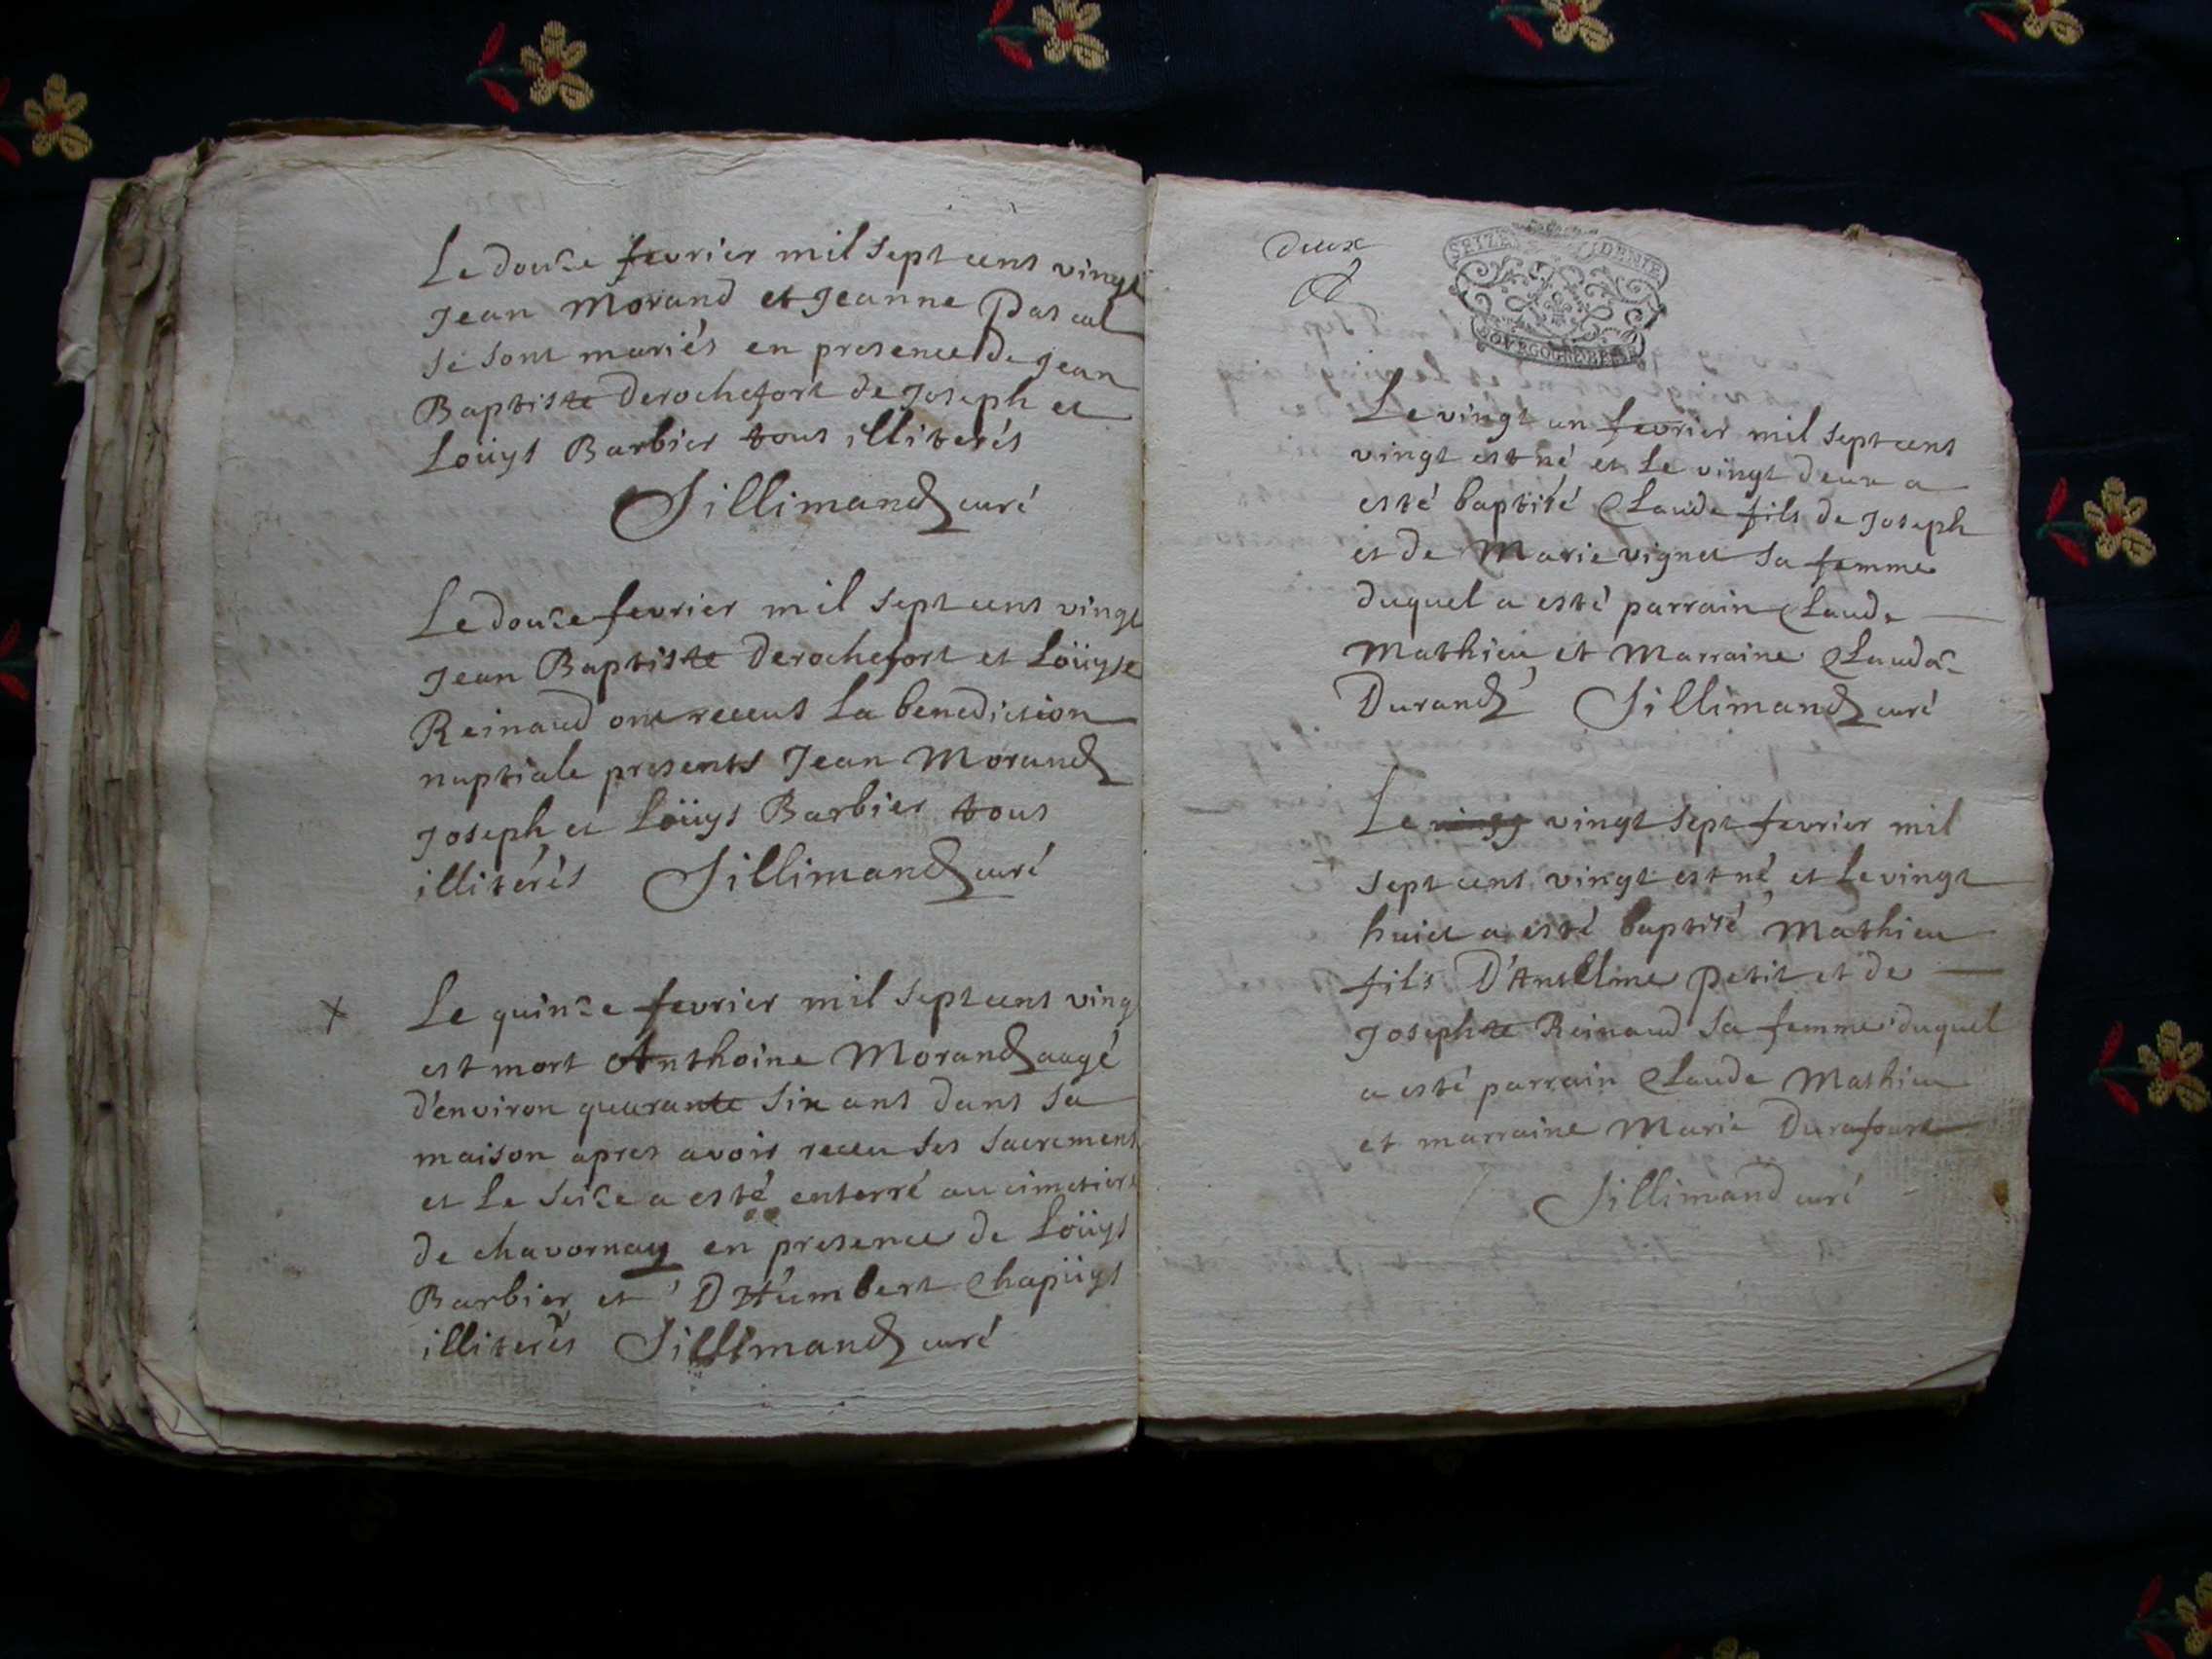 Le douze fevrier mil sept cens vingt
Jean Morand et Jeanne Pascal
se sont mariés en presence de Jean
Baptiste Derochefort de Joseph et
Loüys Barbier tous illiterés
Sillimand curé
Le douze fevrier mil sept cens vingt
Jean Baptiste Derochefort et Loüyse
Reinaud ont receus la benediction
nuptiale presents Jean Morand
Joseph et Loüys Barbier tous
illiterés Sillimand curé
x Le quinze fevrier mil sept cens ving
est mort Anthoine Morand aagé
d'environ quarante six ans dans sa
maison apres avoir receu ses sacremens
et le seize a esté enterré au cimetiere
de chavornay en presence de Loüys
Barbier et D'Humbert Chapüys
illiterés Sillimand curé
deux
SEIZE DENIE
BOVRGOG BRE
Le vingt un fevrier mil sept cens
vingt est né et le vingt deux a
esté baptisé Claude fils de Joseph
et de Marie vignet sa femme
duquel a esté parrain Claude
Mathieu et Marraine Claudaz
Durand Sillimand curé
Le vingt sept fevrier mil
sept cens vingt est né et le vingt
huict a esté baptisé Mathieu
fils D'Antelme petit et de
Josephte Reinaud sa femme duquel
a esté parrain Claude Mathieu
et marraine Marie Durafourt
Sillimand curé